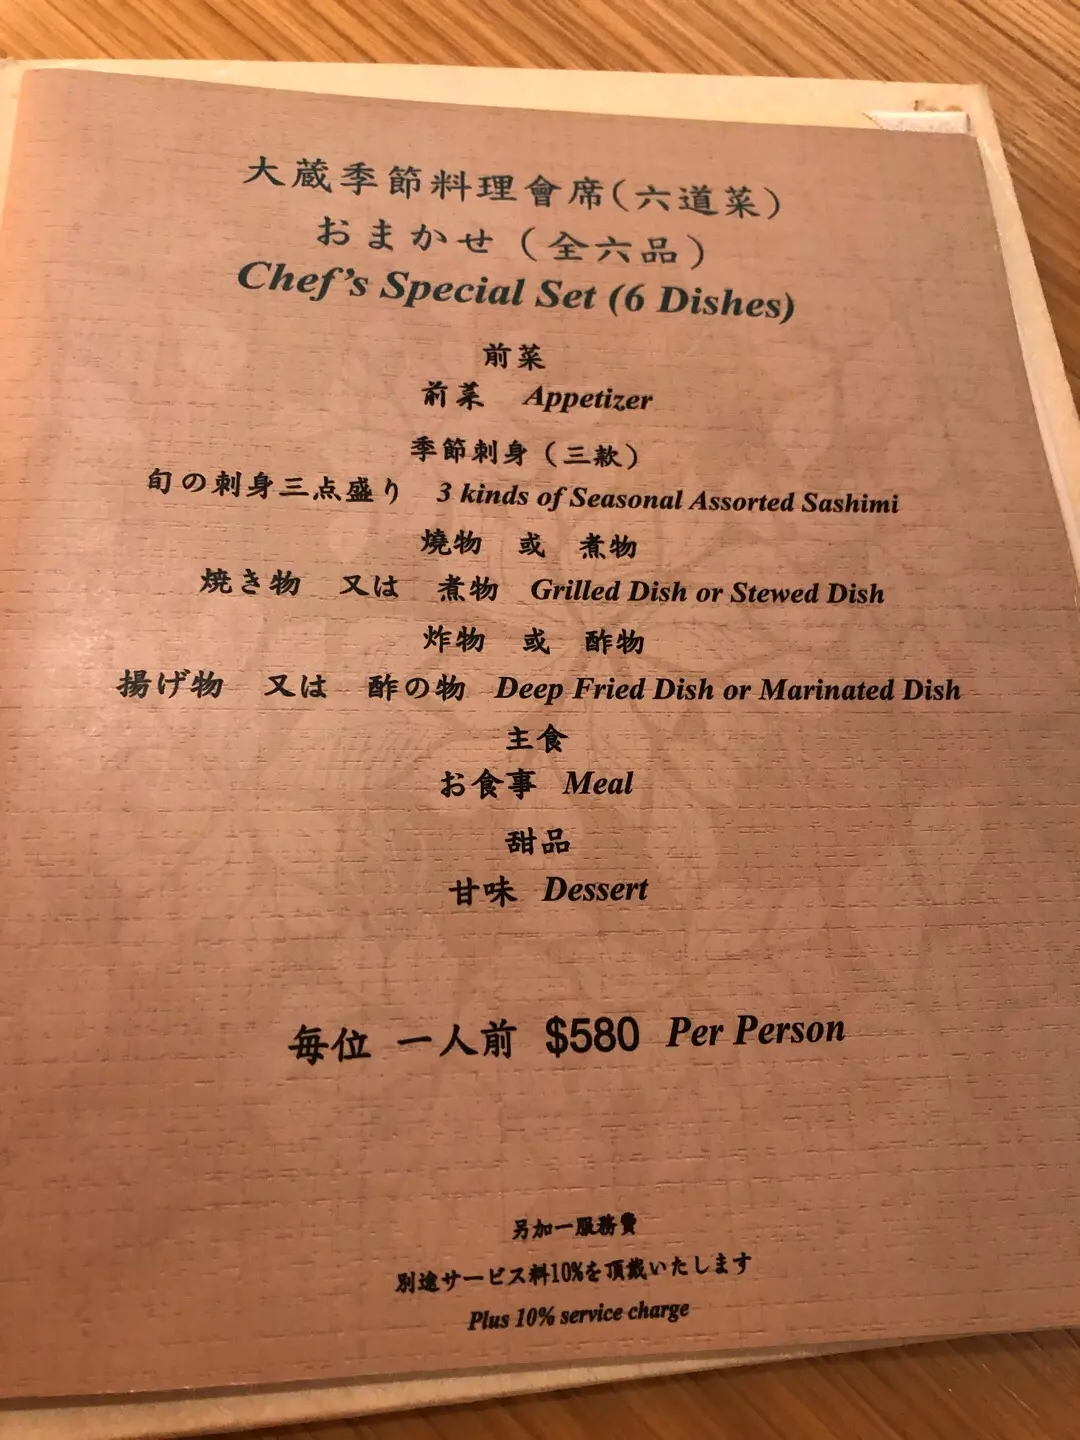 大蔵季節料理會席(六道菜)
おまかせ(全六品)
Chef's Special Set (6 Dishes)
前菜
前菜 Appetizer
季節刺身(三款)
旬の刺身三点盛り 3 kinds of Seasonal Assorted Sashimi
燒物 或 煮物
焼き物 又は 煮物 Grilled Dish or Stewed Dish
炸物 或 酢物
揚げ物 又は 酢の物 Deep Fried Dish or Marinated Dish
主食
お食事 Meal
甜品
甘味 Dessert
每位 一人前 $580 Per Person
另加一服務費
別途サービス料10%を頂戴いたします
Plus 10% service charge